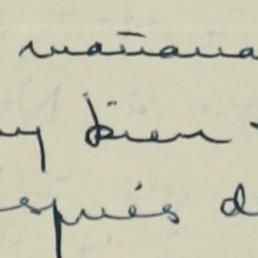 mañana
uy bien
espués d